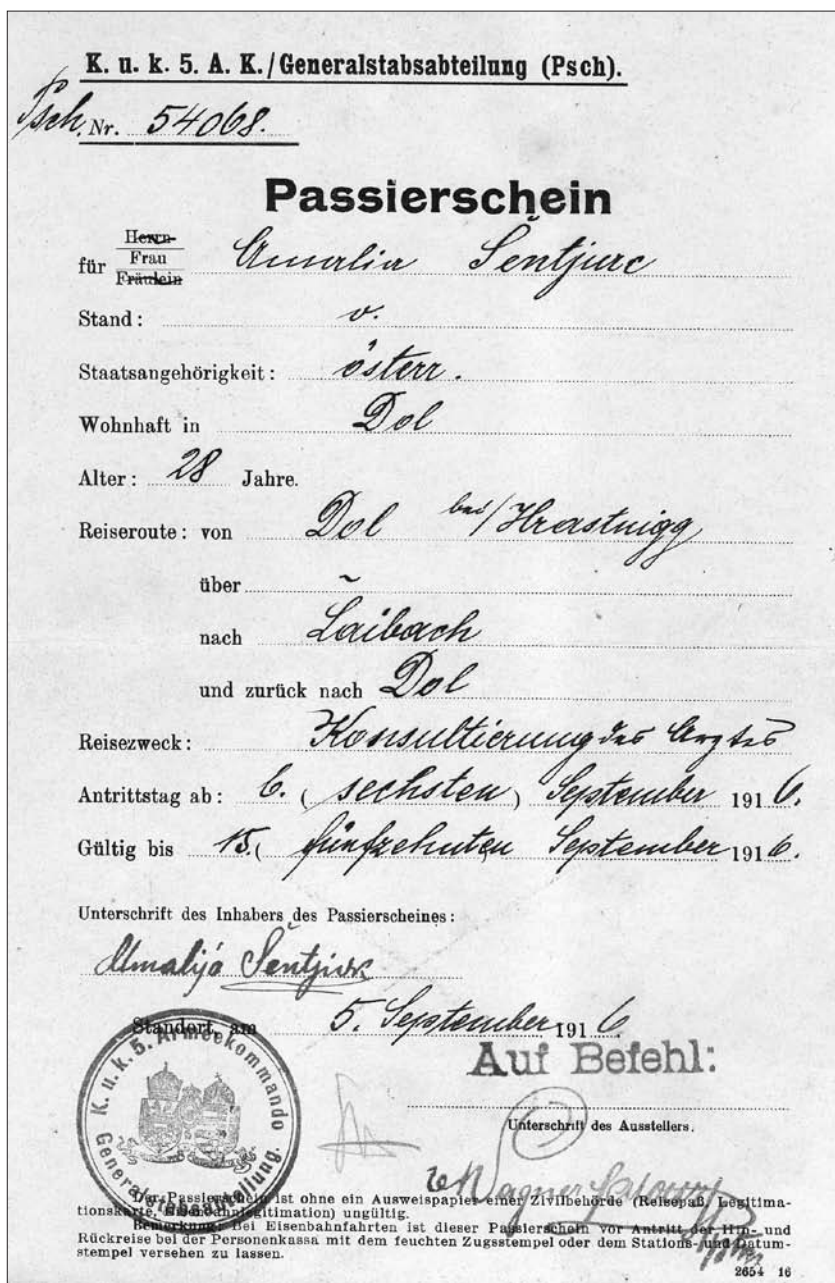 K. u. k. 5. A. K./Generalstabsabteilung (Psch).
Psch. Nr. 54068.
Passierschein
für Herrn Frau Fräulein Amalia Šentjurc
Stand: v.
Staatsangehörigkeit: österr.
Wohnhaft in Dol
Alter: 28 Jahre.
Reiseroute: von Dol bei/Hrastnigg
über ~
nach Laibach
und zurück nach Dol
Reisezweck: Konsultierung des Arztes
Antrittstag ab: 6. (sechsten) September 1916.
Gültig bis 15. (fünfzehnten September 1916.
Unterschrift des Inhabers des Passierscheines:
Amalija Šentjurc
Standort, am 5. September 1916
K. u. k. 5. Armeekommando
Generalstabsabteilung.
Auf Befehl:
Unterschrift des Ausstellers.
Wagner
Der Passierschein ist ohne ein Ausweispapier einer Zivilbehörde (Reisepaß, Legitima-
tionskarte, Eisenbahnlegitimation) ungültig.
Bemerkung: Bei Eisenbahnfahrten ist dieser Passierschein vor Antritt der Hin- und
Rückreise bei der Personenkassa mit dem feuchten Zugsstempel oder dem Stations- und Datum-
stempel versehen zu lassen.
2654 16